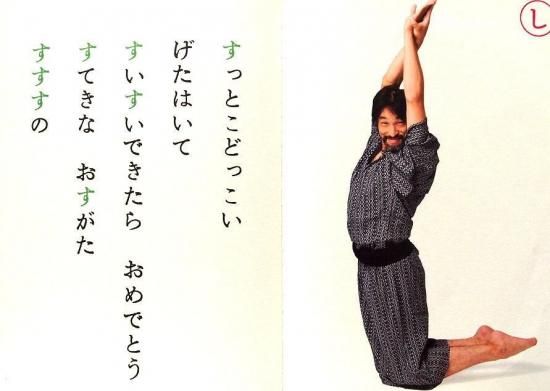 すっとこどっこい
げたはいて
すいすいできたら　おめでとう
すてきな　おすがた
すすすの
し